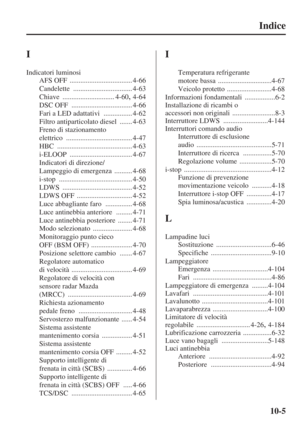 Indice
I
Indicatori luminosi
AFS OFF ................................ 4-66
Candelette .............................. 4-63
Chiave .......................... 4-60, 4-64
DSC OFF ............................... 4-66
Fari a LED adattativi ............... 4-62
Filtro antiparticolato diesel ....... 4-63
Freno di stazionamento
elettrico .................................. 4-47
HBC ...................................... 4-63
i-ELOOP ................................ 4-67
Indicatori di direzione/
Lampeggio di emergenza .......... 4-68
i-stop ...................................... 4-50
LDWS .................................... 4-52
LDWS OFF ............................ 4-52
Luce abbagliante faro .............. 4-68
Luce antinebbia anteriore ......... 4-71
Luce antinebbia posteriore ........ 4-71
Modo selezionato .................... 4-68
Monitoraggio punto cieco
OFF (BSM OFF) ..................... 4-70
Posizione selettore cambio ....... 4-67
Regolatore automatico
di velocità ............................... 4-69
Regolatore di velocità con
sensore radar Mazda
(MRCC) ................................. 4-69
Richiesta azionamento
pedale freno ............................ 4-48
Servosterzo malfunzionante ...... 4-54
Sistema assistente
mantenimento corsia ................ 4-51
Sistema assistente
mantenimento corsia OFF ......... 4-52
Supporto intelligente di
frenata in città (SCBS) ............. 4-66
Supporto intelligente di
frenata in città (SCBS) OFF ..... 4-66
TCS/DSC ............................... 4-65
I
Temperatura refrigerante
motore bassa ............................4-67
Veicolo protetto ........................4-68
Informazioni fondamentali ................6-2
Installazione di ricambi o
accessori non originali ......................8-3
Interruttore LDWS ........................4-144
Interruttori comando audio
Interruttore di esclusione
audio .......................................5-71
Interruttore di ricerca ................5-70
Regolazione volume .................5-70
i-stop .............................................4-12
Funzione di prevenzione
movimentazione veicolo ...........4-18
Interruttore i-stop OFF ..............4-17
Spia luminosa/acustica ..............4-20
L
Lampadine luci
Sostituzione .............................6-46
Specifiche ................................9-10
Lampeggiatore
Emergenza .............................4-104
Fari .........................................4-86
Lampeggiatore di emergenza .........4-104
Lavafari .......................................4-101
Lavalunotto ..................................4-101
Lavaparabrezza .............................4-100
Limitatore di velocità
regolabile ............................4-26, 4-184
Lubrificazione carrozzeria ...............6-32
Luce vano bagagli ........................5-148
Luci antinebbia
Anteriore .................................4-92
Posteriore ................................4-94
10-5